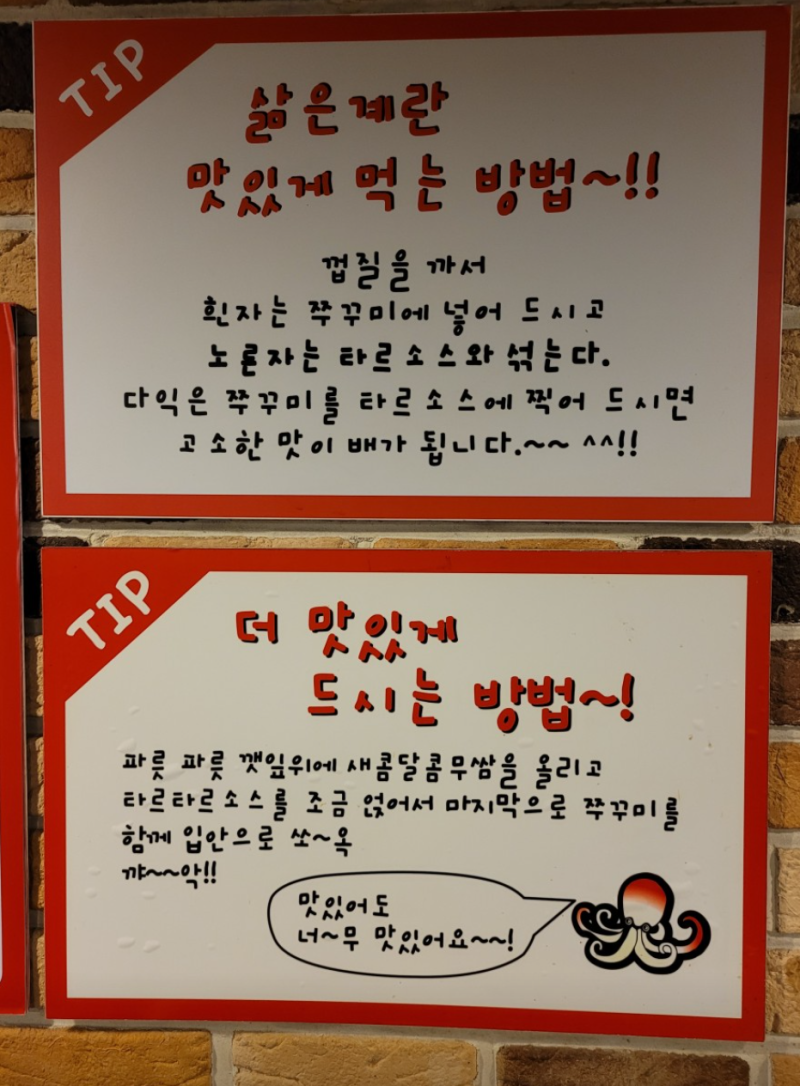 TIP
삶은계란
맛있게 먹는 방법~!!
껍질을 까서
흰자는 쭈꾸미에 넣어 드시고
노른자는 타르소스와 섞는다.
다익은 쭈꾸미를 타르소스에 찍어 드시면
고소한 맛이 배가 됩니다.~~ ^^!!
TIP
더 맛있게
드시는 방법~!
파릇 파릇 깻잎위에 새콤달콤무쌈을 올리고
타르타르소스를 조금 얹어서 마지막으로 쭈꾸미를
함께 입안으로 쏘~옥
꺄~~악!!
맛있어도
너~무 맛있어요~~!